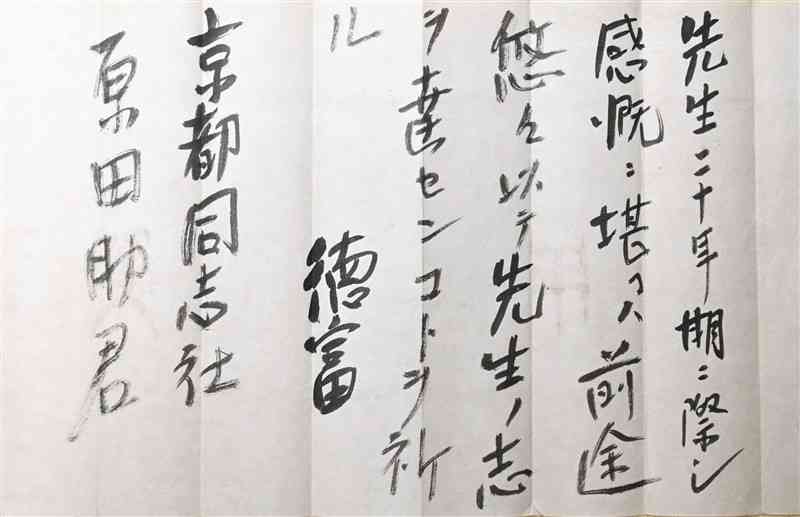 先生二十年期ニ際シ
感慨ニ堪ヘス前途
悠々以テ先生ノ志
ヲ達センコトヲ祈
ル
徳富
京都同志社
原田助君